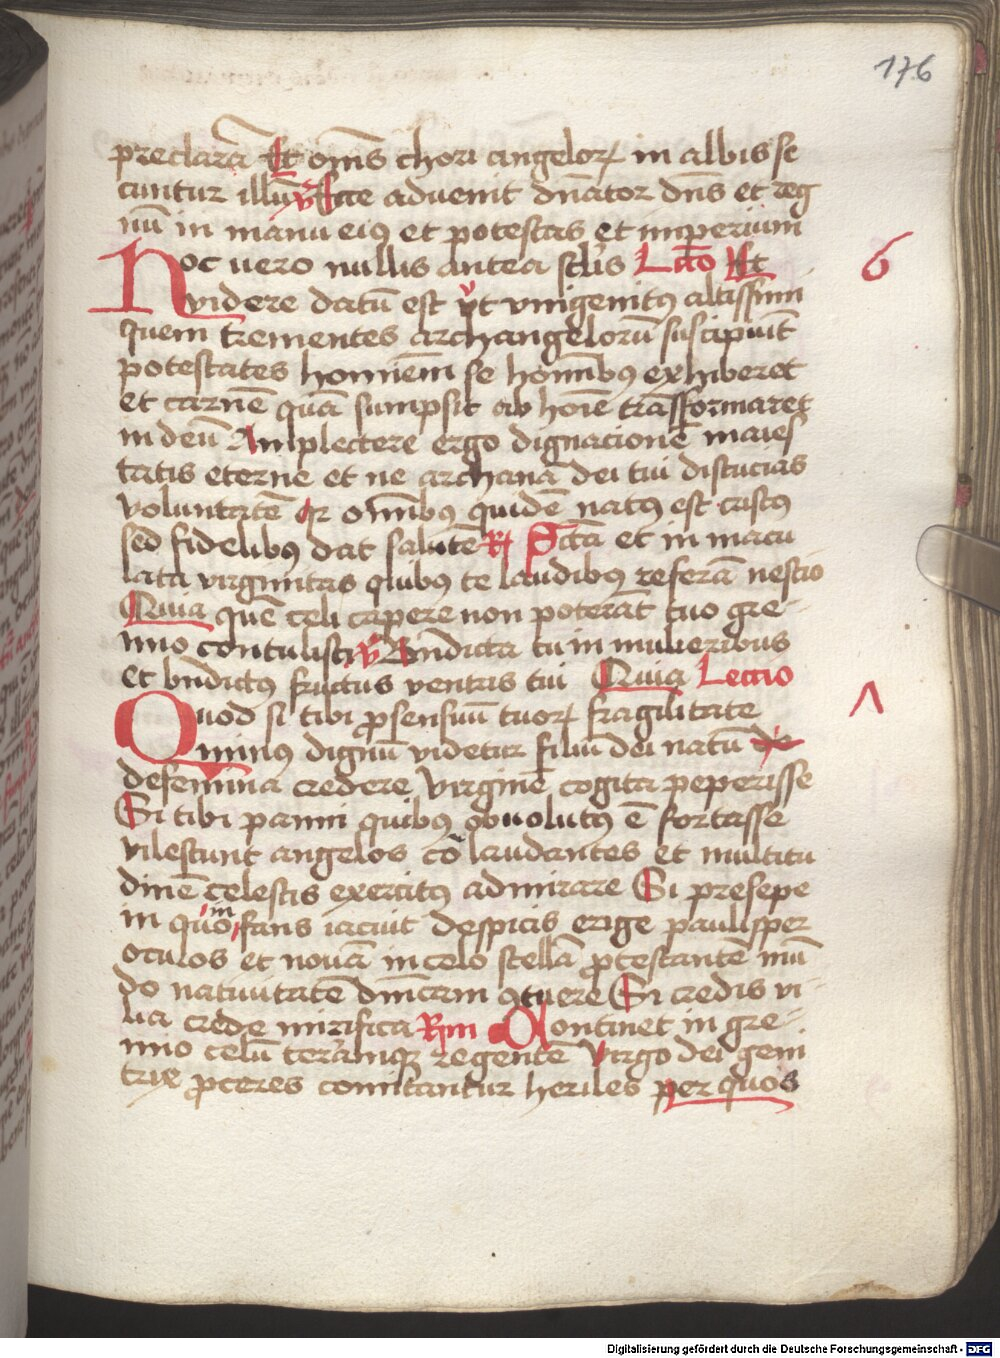 176
preclarā Et om̄s chori angelorꝝ in albis se
cuntur illū v̄ Ecce advenit dn̄ator dn̄s et reg
nū in manu eiꝯ et potestas et imperium
Hoc vero nullis antea sctīs Lcc̄o Et 6
videre datū est vt vnigenitꝯ altissimi
quem trementes archangelorū suscipiūt
potestates hominem se homībꝯ exhiberet
et carnē quā sumpsit ab hoīe trāsformaret
in deū Amplectere ergo dignacionē maies
tatis eterne et ne archana dei tui discucias
voluntatē qr omībꝯ quidē natꝯ est castꝯ
sed fidelibꝯ dat salutē R Sctā et in macu
lata virginitas quibꝯ te laudibꝯ referā nescio
Quia quē celi capere non poterāt tuo gre-
mio contulisti v̄ Bn̄dicta tu in mulieribus
et bn̄dictꝯ fructus ventris tui Quia Lectio
Quod si tibi ꝓ sensuū tuorꝝ fragilitate Λ
minꝯ dignū videtur filiū dei natū de
de femina credere virginē cogita peperisse
Si tibi panni quibus obvolutꝯ ē fortasse
vilescunt angelos cō laudantes et multitu
dinē celestis exercitꝯ admirare Si presepe
in quo in fans iacuit despicis erige paulisper
oculos et novā in celo stellā ꝓtestantē mū
do nativitatē dn̄icam ꝯtuere Si credis vi-
lia crede mirifica Rm Continet in gre-
mio celū terramqꝫ regentē virgo dei geni
trix ꝓceres comitantur heriles per quos
Digitalisierung gefördert durch die Deutsche Forschungsgemeinschaft - DFG